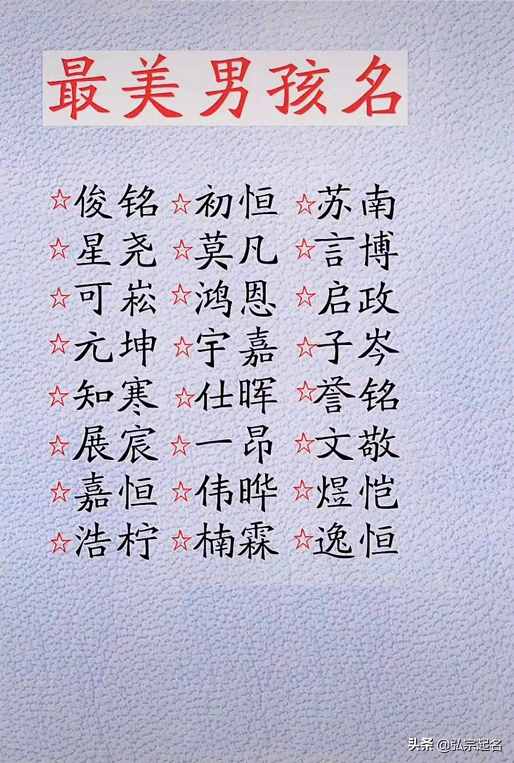 最美男孩名
☆俊铭 ☆初恒 ☆苏南
☆星尧 ☆莫凡 ☆言博
☆可崧 ☆鸿恩 ☆启政
☆亢坤 ☆宇嘉 ☆子岑
☆知寒 ☆仕晖 ☆誉铭
☆展宸 ☆一昂 ☆文敬
☆嘉恒 ☆伟晔 ☆煜恺
☆浩柠 ☆楠霖 ☆逸恒
头条 @弘宗起名